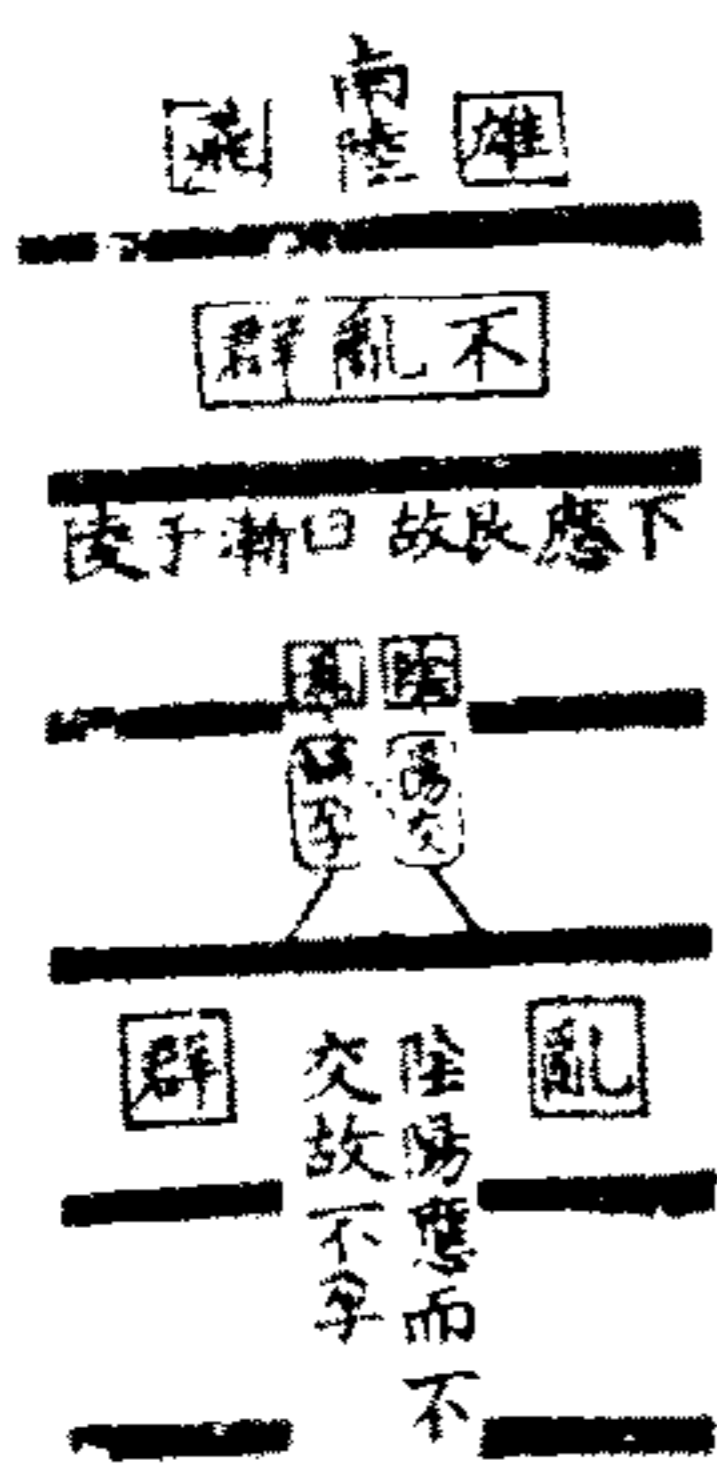 雄
南陸
飛
不亂群
下應艮故曰漸于陵
陰
陽交
孕
亂
陰陽應而不
交故不孕
群